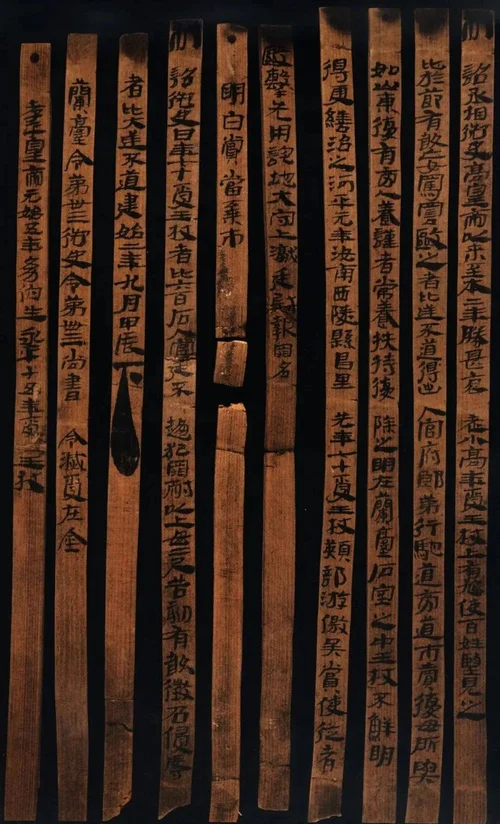 制詔丞相御史高皇帝以來至本二年勝甚哀老小高年受王杖上有鳩使百姓望見之
比於節有敢妄罵詈毆之者比逆不道得出入官府郎第行馳道旁道市賣復毋所與
如山東復有旁人養謹者常養扶持復除之明在蘭臺石室之中王杖不鮮明
得更繕治之河平元年汝南西陵縣昌里先年七十受王杖熲部游徼吳賞使從者
毆擊先用詫地大守上讞廷尉報罪名
明白賞當棄市
制詔御史曰年七十受王杖者比六百石入官廷不趨犯罪耐以上毋二尺告劾有敢徵召侵辱
者比大逆不道建始二年九月甲辰下
蘭臺令第卅三御史令第卌三尚書令滅受在金
孝平皇帝元始五年幼伯生永平十五年受王杖